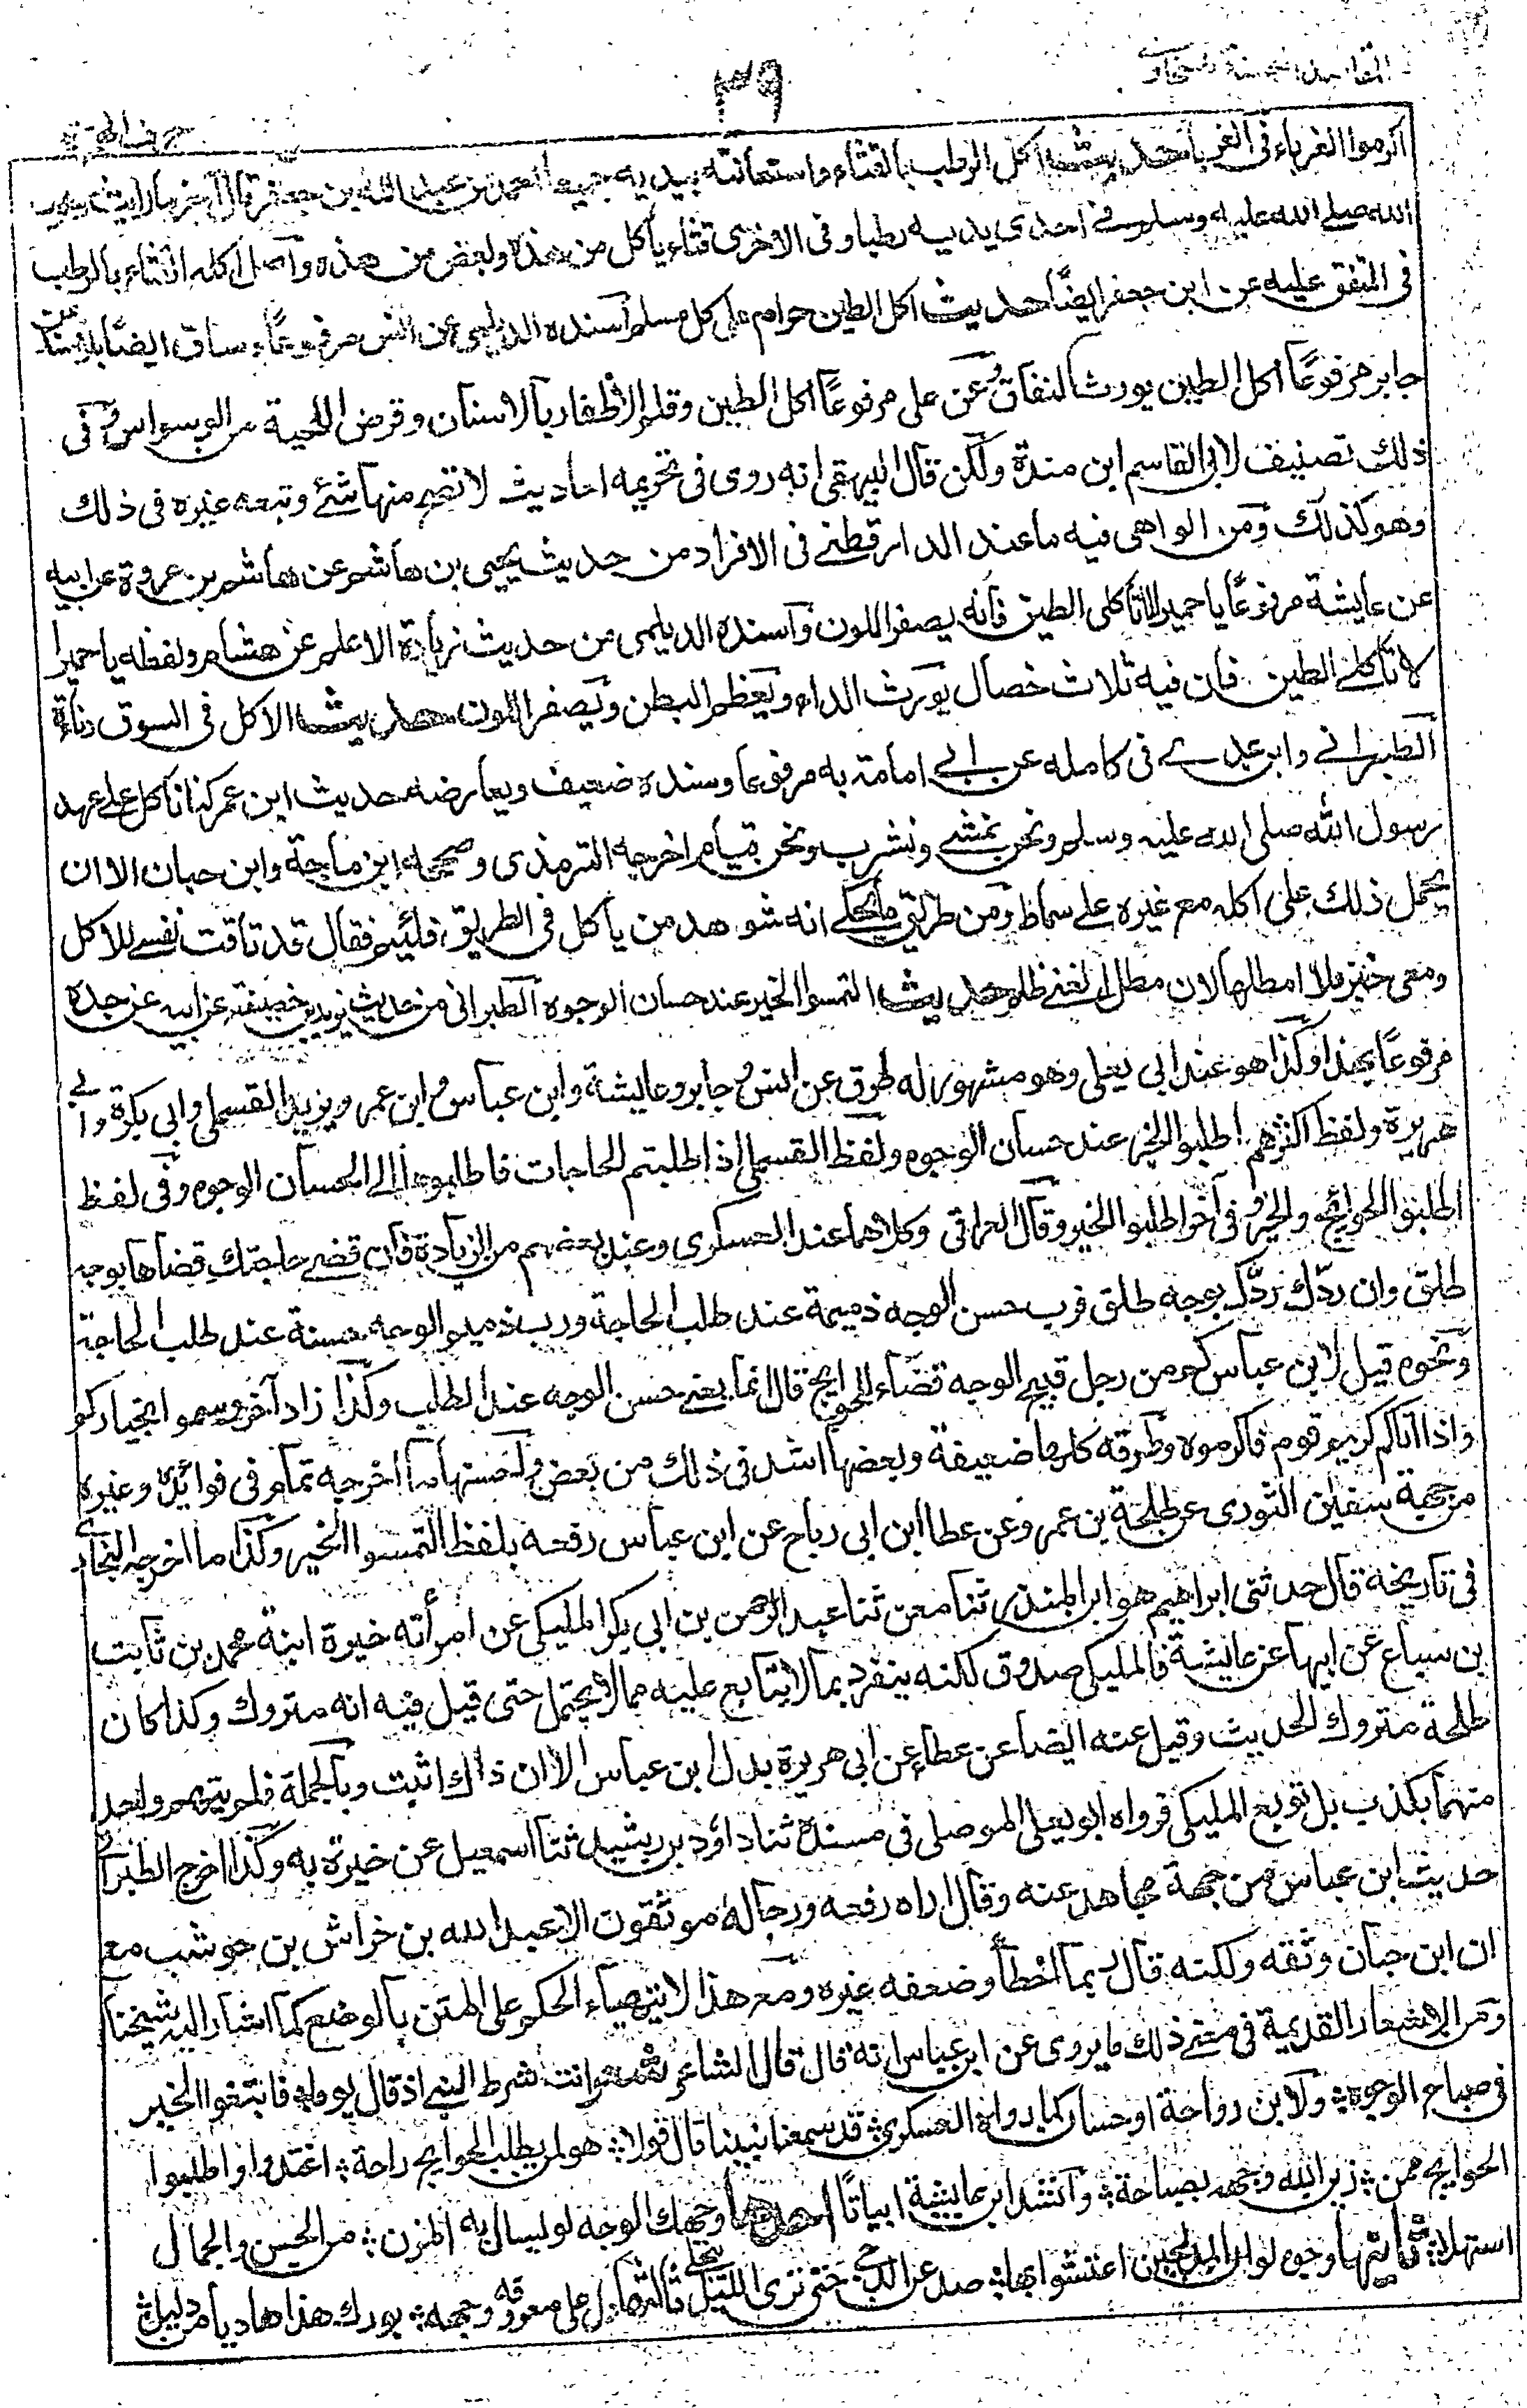 المقاصد الحسنة للسخاوي
٣٩
حرف الهمزة
اكرموا الغرباء فى الغرباء حديث اكل الرطب بالقثاء واستعانته بيديه جميعا احمد عن عبد الله بن جعفر قال آخر ما رايت رسول
الله صلے الله عليه وسلم فے احدى يديه رطبا وفى الاخرى قثاء يأكل من هذه وبعض من هذه وآصل اكله القثاء بالرطب
فى المتفق عليه عن ابن جعفر ايضًا حديث اكل الطين حرام على كل مسلم آسنده الديلمى عن انس مرفوعًا وساق ايضًا بلا سند عن
جابر مرفوعًا اكل الطين يورث النفاق وعن على مرفوعًا اكل الطين وقلم الاظفار بالاسنان وقرض اللحية من الوسواس وفى
ذلك تصنيف لابى القاسم ابن مندة ولكن قال البيهقى انه روى فى تحريمه احاديث لا تصح منها شئ وتبعه غيره فى ذلك
وهو كذلك ومن الواهى فيه ما عند الدارقطنے فى الافراد من حديث يحيى بن هاشم عن هاشم بن عروة عن ابيه
عن عايشة مرفوعًا يا حميرا لا تأكلى الطين فانه يصفر اللون وآسنده الديلمى من حديث زيادة الاعلم عن هشام ولفظه يا حميرا
لا تأكلے الطين فان فيه ثلاث خصال يورث الداء ويعظم البطن ويصفر اللون حديث الاكل فى السوق دناءة
الطبرانے وابن عدے فى كامله عن ابے امامة به مرفوعا وسنده ضعيف ويعارضه حديث ابن عمر كنا نأكل على عهد
رسول الله صلى الله عليه وسلم ونحن نمشے ونشرب ونحن قيام اخرجه الترمذى وصححه ابن ماجة وابن حبان الا ان
يحمل ذلك على اكله مع غيره علے سماط ومن طريق ما يحكے انه شوهد من يأكل فى الطريق فليم فقال قد تاقت نفسے للاكل
ومعى خبز فلا امطلها لان مطل الغنے ظلم حديث التمسوا الخير عند حسان الوجوه الطبرانى من حديث يزيد بن خصيفة عن ابيه عن جده
مرفوعًا بهذا وكذا هو عند ابى يعلى وهو مشهور له طرق عن انس وجابر وعايشة وابن عباس وابن عمر ويزيد القسملى وابى بكرة وابے
هريرة ولفظ اكثرهم اطلبوا الخير عند حسان الوجوه ولفظ القسملى اذا طلبتم الحاجات فاطلبوها الى الحسان الوجوه وفى لفظ
اطلبوا الحوائج والخير وفى آخر اطلبوا الخير وقال العراقى وكلاهما عند العسكرى وعند بعضهم من الزيادة فان قضے حاجتك قضاها بوجه
طلق وان ردّك ردّك بوجه طلق فرب حسن الوجه ذميمة عند طلب الحاجة ورب ذميم الوجه حسنة عند طلب الحاجة
ونحوه قيل لابن عباس كم من رجل قبيح الوجه قضّاء للحوايج قال انما يعنے حسن الوجه عند الطلب وكذا زاد آخر وسموا بخياركم
واذا اتاكم كريم قوم فاكرموه وطرقه كلها ضعيفة وبعضها اشد فى ذلك من بعض واحسنها ما اخرجه تمام فى فوائده وغيره
من جهة سفين الثورى عن طلحة بن عمر وعن عطا ابن ابى رباح عن ابن عباس رفعه بلفظ التمسوا الخير وكذا ما اخرجه البخارے
فى تاريخه قال حدثنى ابراهيم هو ابن المنذر ثنا معن ثنا عبد الرحمن بن ابى بكر المليكى عن امرأته خيرة ابنة محمد بن ثابت
بن سباع عن ابيها عن عايشة فالمليكى صدوق لكنه ينفرد بما لا يتابع عليه مما لا يحتمل حتى قيل فيه انه متروك وكذا كان
طلحة متروك الحديث وقيل عنه ايضا عن عطاء عن ابى هريرة بدل ابن عباس الا ان ذاك اثبت وبالجملة فلم يتهم واحد
منهما بكذب بل توبع المليكى فرواه ابو يعلى الموصلى فى مسنده ثنا داؤد بن رشيد ثنا اسمعيل عن خيرة به وكذا اخرج الطبرانے
حديث ابن عباس من جهة مجاهد عنه وقال اراه رفعه ورجاله موثقون الا عبد الله بن خراش بن حوشب مع
ان ابن حبان وثقه ولكنه قال ربما اخطأ وضعفه غيره ومع هذا لا يتهيأ الحكم على المتن بالوضع كما اشار اليه شيخنا
ومن الاشعار القديمة فى معنے ذلك ما يروى عن ابن عباس انه قال قال الشاعر شعر انت شرط النبے اذ قال يوما فابتغوا الخير
فى صباح الوجوه ولابن رواحة او حسان كما رواه العسكرى قد سمعنا نبينا قال قولا هو لمن يطلب الحوايج راحة اغتدوا واطلبوا
الحوايج ممن زين الله وجهه بصباحة وآنشد ابن عايشة ابياتًا احدها وجهك الوجه لو يسال به المزن من الحسن والجمال
استهلا ثانيها وجوه لو ان المدلجين اعتشوا بها صدعن الدجى حتى ترى الليل ينجلے ثالثها دل على معروفه وجهه بورك هذا هاديا من دليل